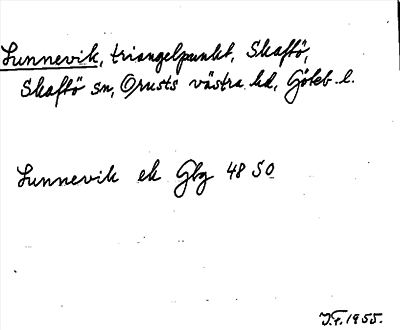 Sunnevik, triangelpunkt, Skaftö,
Skaftö sn, Orusts västra hd, Göteb. l.
Sunnevik ek Gbg 48 SO
J.F. 1955.